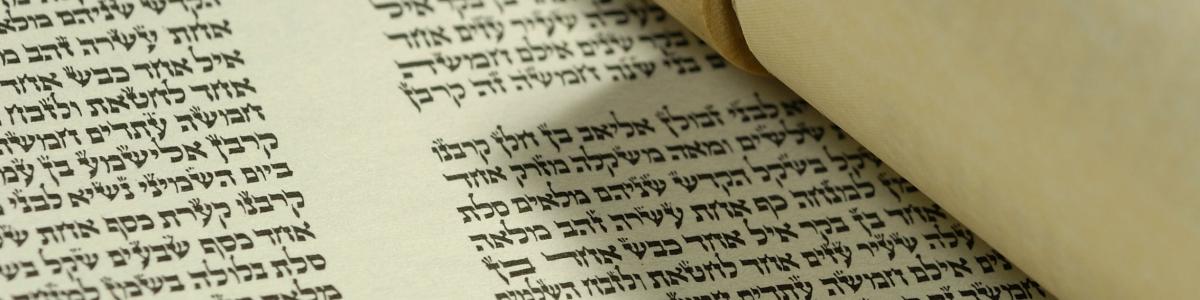 בן בקר איל
שעיר עזים אחד
בקר שנים אילם חמשה
בני שנה חמשה זה קרבן
לבני זבולן אליאב בן חלן קרבנו
שלשים ומאה משקלה מזרק אחד
בשקל הקדש שניהם מלאים סלת
למנחה כף אחת עשרה זהב מלאה
אחד בן בקר איל אחד כבש אחד בן
שעיר עזים אחד לחטאת ולזבח השלמים
אילם חמשה עתדים חמשה
הקדש שניהם
אחת עשרה זהב
איל אחד כבש אחד
אחד לחטאת ולזבח
חמשה עתדים חמשה
קרבן אלישמע בן
ביום השמיני נשיא לבני
קרבנו קערת כסף אחת
אחד כסף שבעים שקל
סלת בלולה בשמן למנחה
מלאה